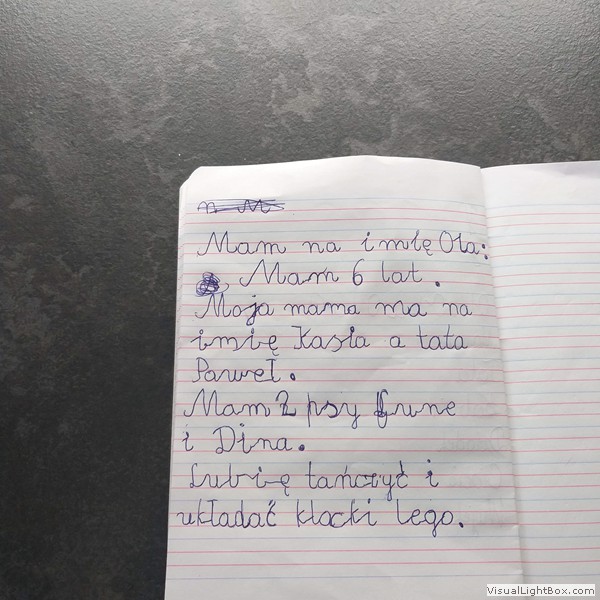 Mam na imię Ola.
Mam 6 lat.
Moja mama ma na
imię Kasia a tata
Paweł.
Mam 2 psy Fune
i Dina.
Lubię tańczyć i
układać klocki lego.
VisualLightBox.com